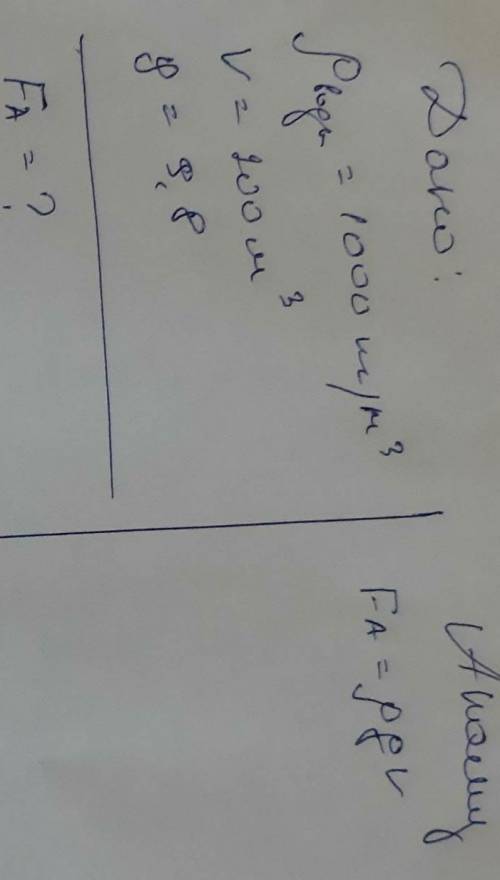 Дано:
ρ воды = 1000 кг/м³
V = 200 м³
g = 9,8
FA = ?
FA = ρgV